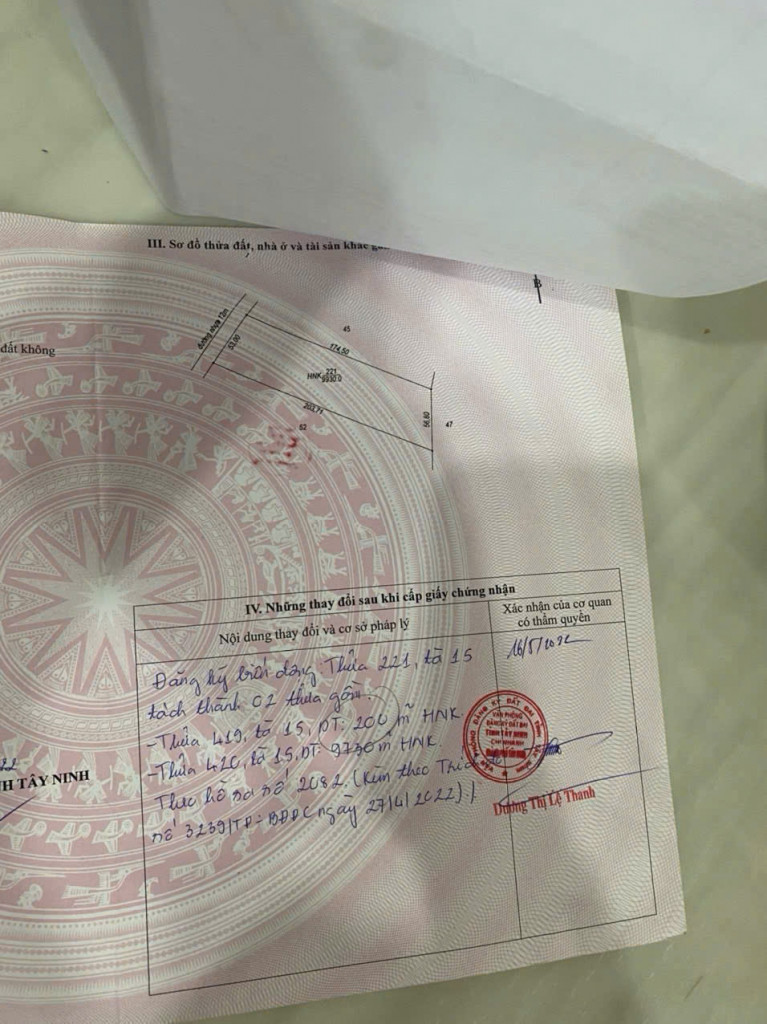 III. Sơ đồ thửa đất, nhà ở và tài sản khác
B
đường nhựa 12m
45
174,50
53,00
đất không
HNK 221
9930.0
203,79
52
56,80
47
IV. Những thay đổi sau khi cấp giấy chứng nhận
Nội dung thay đổi và cơ sở pháp lý
Xác nhận của cơ quan
có thẩm quyền
Đăng ký biến động Thửa 221, tờ 15
16/5/2022
tách thành 02 thửa gồm:
-Thửa 419, tờ 15, DT: 200 m² HNK.
-Thửa 420, tờ 15, DT: 9730 m² HNK.
Theo hồ sơ số 2082. (Kèm theo
số 3239/TĐ-BĐĐC ngày 27/4/2022)/.
VĂN PHÒNG
ĐĂNG KÝ ĐẤT ĐAI
TỈNH TÂY NINH
CHI NHÁNH
22
H TÂY NINH
Dương Thị Lệ Thanh